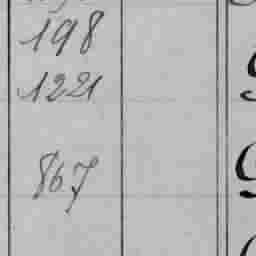 198
1221
867